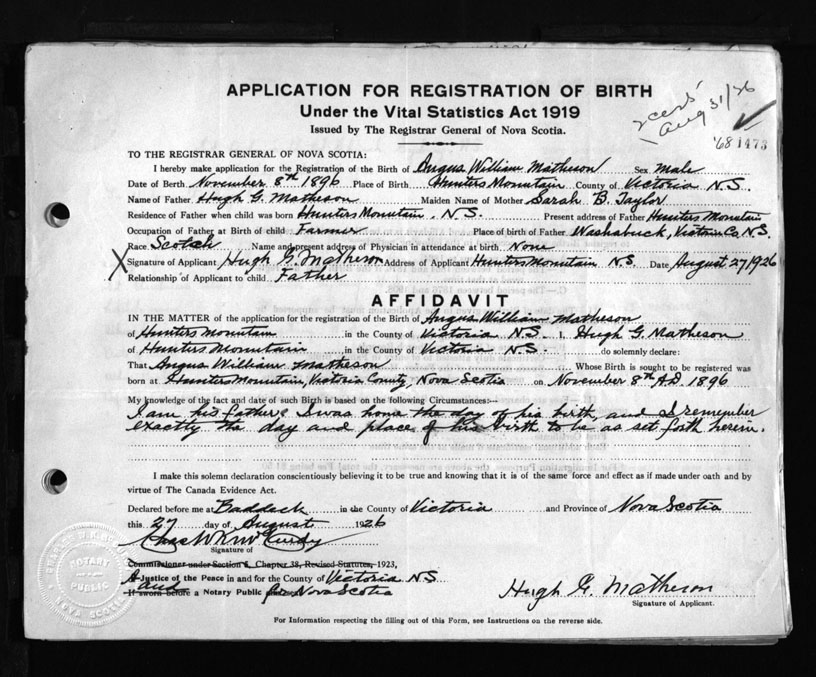 APPLICATION FOR REGISTRATION OF BIRTH
Under the Vital Statistics Act 1919
Issued by The Registrar General of Nova Scotia.
Aug 31/26
'68 1473
TO THE REGISTRAR GENERAL OF NOVA SCOTIA:
I hereby make application for the Registration of the Birth of Angus William Matheson Sex Male
Date of Berth November 8th 1896 Place of Birth Hunters Mountain County of Victoria N.S.
Name of Father Hugh G. Matheson Maiden Name of Mother Sarah B. Taylor
Residence of Father when child was born Hunters Mountain, N.S. Present address of Father Hunters Mountain
Occupation of Father at Birth of child Farmer Place of birth of Father Washabuck, Victoria Co N.S.
Race Scotch Name and present address of Physician in attendance at birth None
X Signature of Applicant Hugh G. Matheson Address of Applicant Hunters Mountain N.S. Date August 27/1926
Relationship of Applicant to child Father
AFFIDAVIT
IN THE MATTER of the application for the registration of the Birth of Angus William Matheson
of Hunters Mountain in the County of Victoria N.S. I, Hugh G. Matheson
of Hunters Mountain in the County of Victoria N.S. do solemnly declare:
That Angus William Matheson Whose Birth is sought to be registered was
born at Hunters Mountain, Victoria County, Nova Scotia on November 8th A.D. 1896
My knowledge of the fact and date of such Birth is based on the following Circumstances:—
I am his father & I was home the day of his birth, and I remember
exactly the day and place of his birth to be as set forth herein.
I make this solemn declaration conscientiously believing it to be true and knowing that it is of the same force and effect as if made under oath and by
virtue of The Canada Evidence Act.
Declared before me at Baddeck in the County of Victoria and Province of Nova Scotia
this 27 day of August 1926
Chas W K McCurdy
Signature of
Commissioner under Section 6, Chapter 38, Revised Statutes, 1923,
A Justice of the Peace in and for the County of Victoria N.S.
and
If sworn before a Notary Public for Nova Scotia
Hugh G. Matheson
Signature of Applicant.
NOTARY
PUBLIC
NOVA SCOTIA
For Information respecting the filling out of this Form, see Instructions on the reverse side.